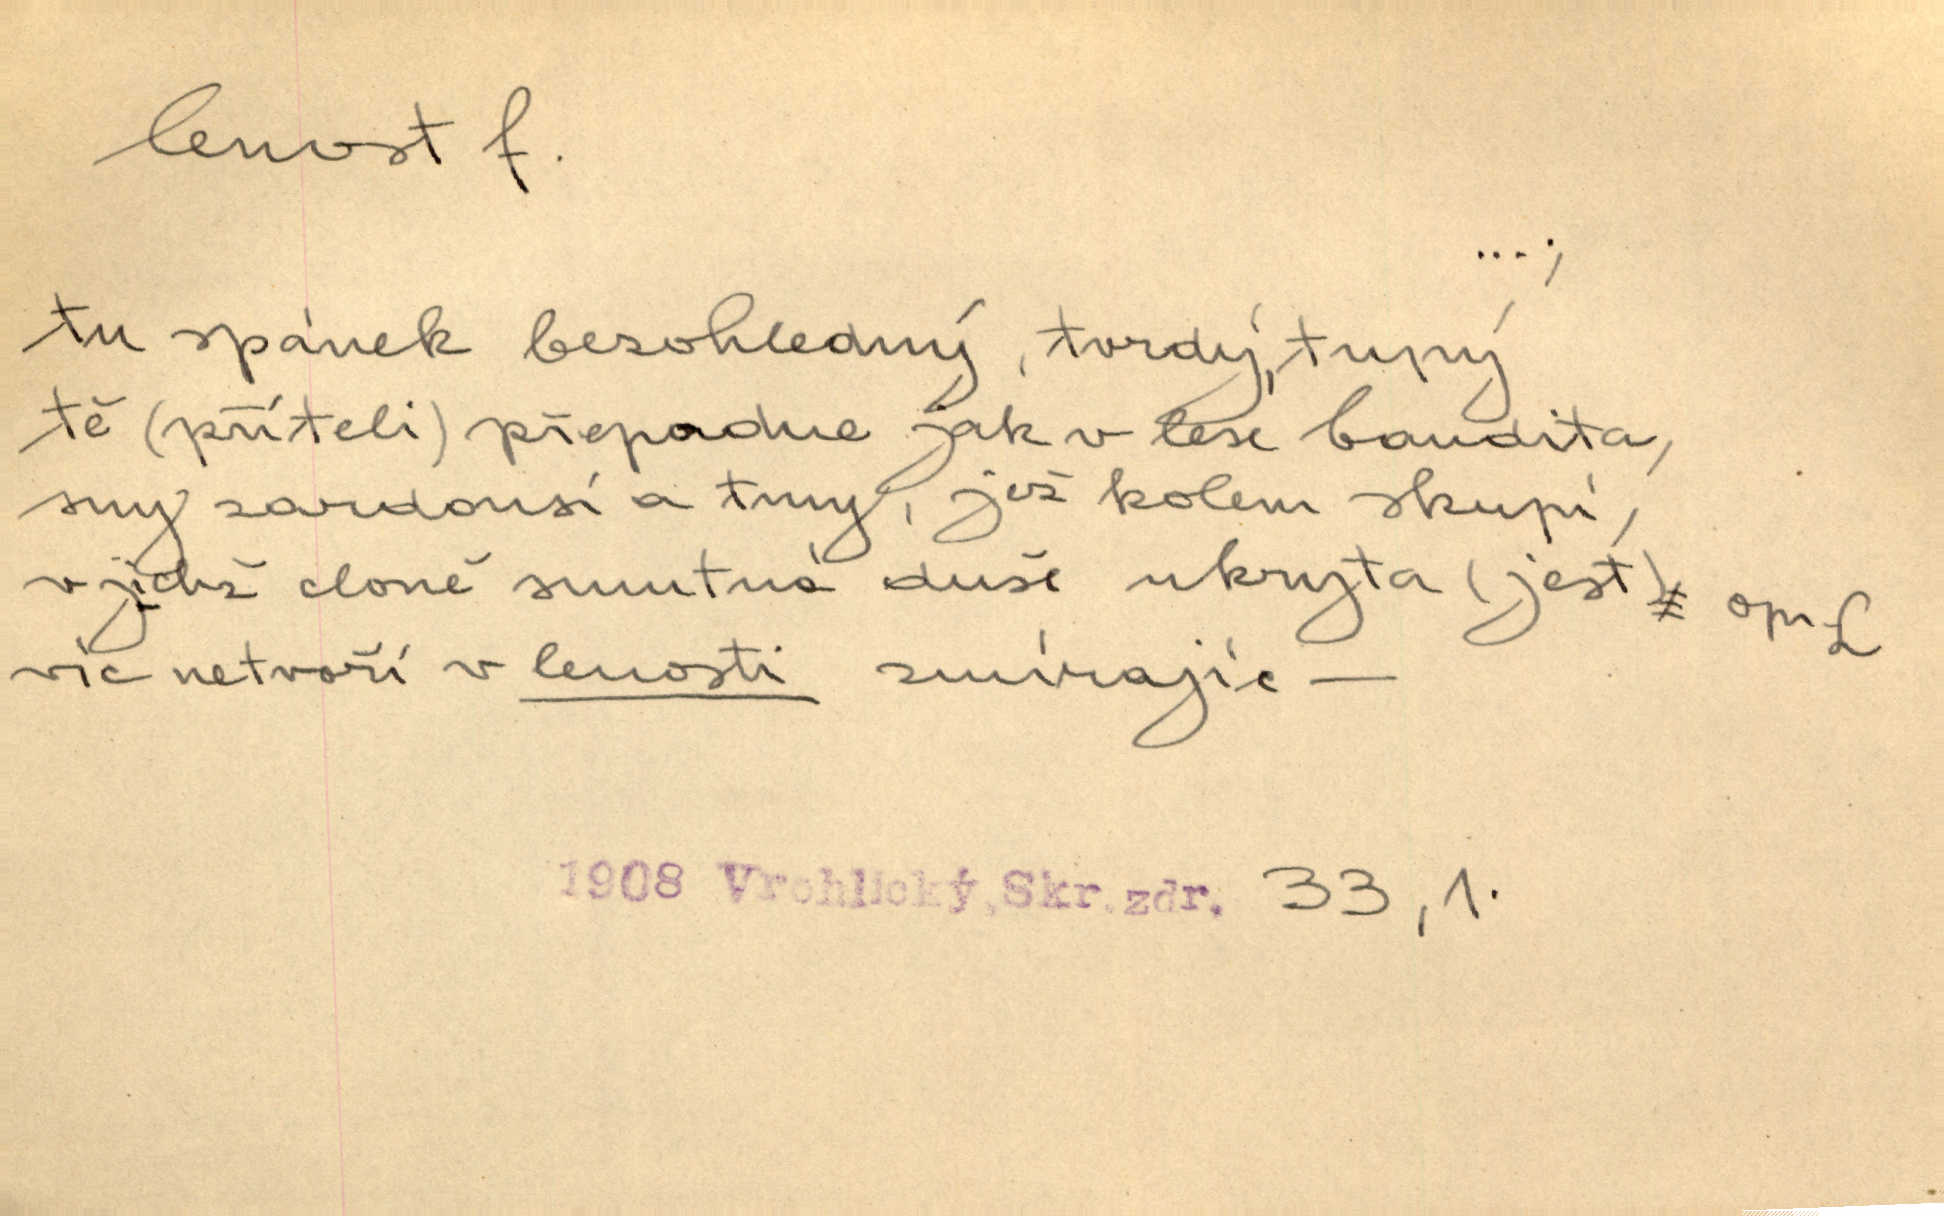 lenost f.
...;
tu spánek bezohledný, tvrdý, tupý
tě (příteli) přepadne jak v lese bandita,
sny zardousí a tmy, jež kolem skupí,
v jichž cloně smutná duše ukryta (jest)
víc netvoří v lenosti zmírajíc —
1908 Vrchlický, Skr. zdr. 33, 1.